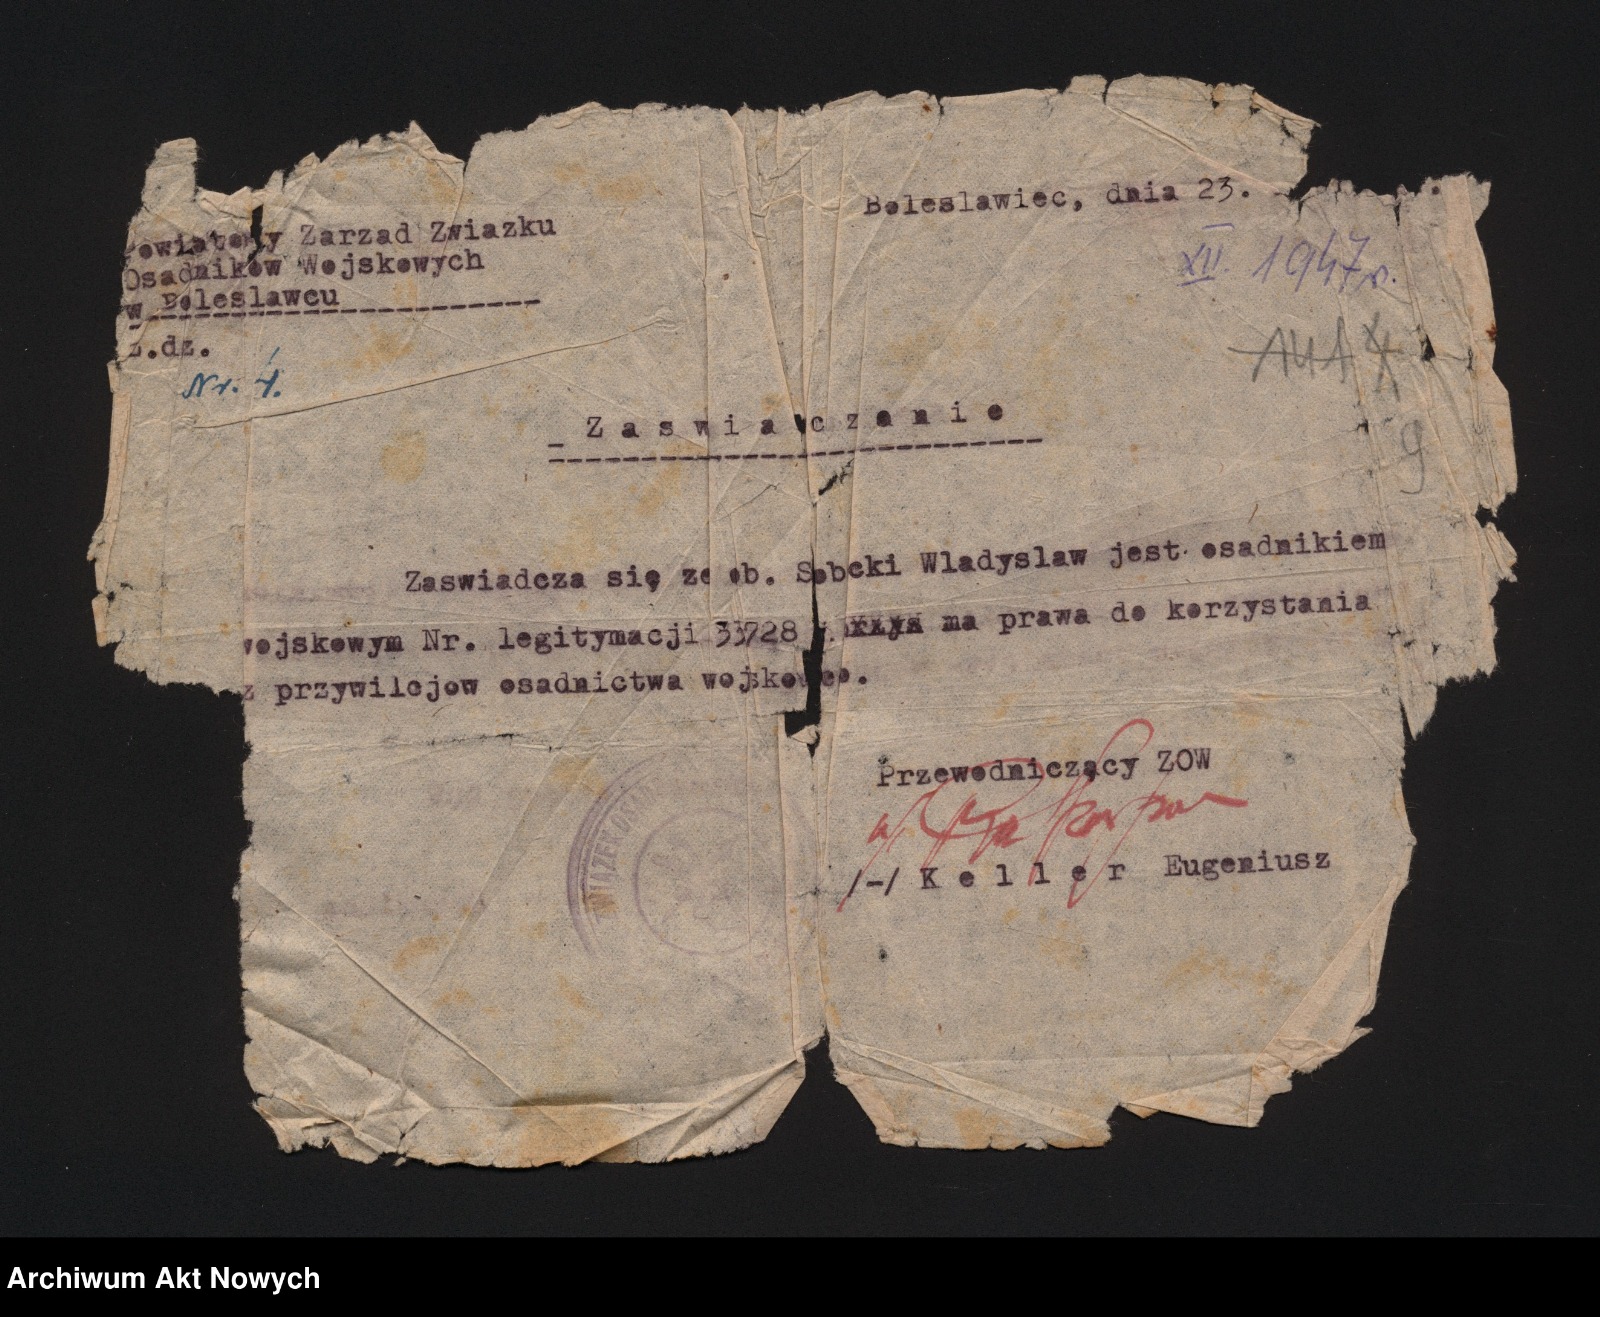 Boleslawiec, dnia 23.
XII. 1947 r.
Powiatowy Zarzad Zwiazku
Osadników Wojskowych
w Boleslawcu
L.dz.
Nr. 1.
9
Zaswiadczenie
Zaswiadcza się ze ob. Sobcki Wladyslaw jest osadnikiem
wojskowym Nr. legitymacji 33728 ma prawa do korzystania
z przywilejow osadnictwa wojskowego.
Przewodniczący ZOW
/-/ Keller Eugeniusz
Archiwum Akt Nowych